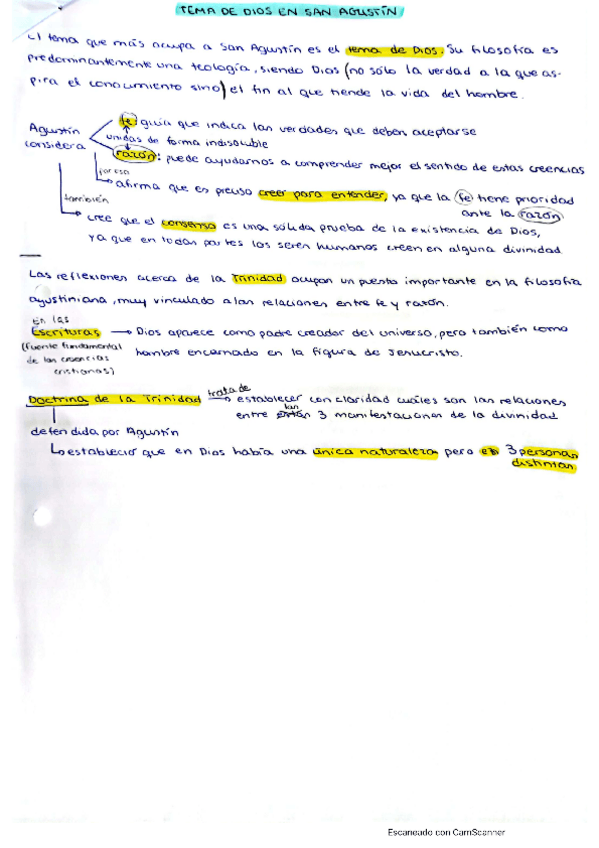 TEMA DE DIOS EN SAN AGUSTÍN
El tema que más ocupa a San Agustín es el tema de Dios. Su filosofía es
predominantemente una teología, siendo Dios (no sólo la verdad a la que as-
pira el conocimiento sino) el fin al que tiende la vida del hombre.
Agustín considera
fe: guía que indica las verdades que deben aceptarse
unidas de forma indisoluble
razón: puede ayudarnos a comprender mejor el sentido de estas creencias
por eso
afirma que es preciso creer para entender, ya que la fe tiene prioridad
ante la razón
también
cree que el consenso es una sólida prueba de la existencia de Dios,
ya que en todas partes los seres humanos creen en alguna divinidad
Las reflexiones acerca de la Trinidad ocupan un puesto importante en la filosofía
agustiniana, muy vinculado a las relaciones entre fe y razón.
En las
Escrituras → Dios aparece como padre creador del universo, pero también como
(fuente fundamental
de las creencias
cristianas)
hombre encarnado en la figura de Jesucristo.
Doctrina de la Trinidad trata de → establecer con claridad cuáles son las relaciones
entre las 3 manifestaciones de la divinidad
defendida por Agustín
Lo estableció que en Dios había una única naturaleza pero en 3 personas
distintas
Escaneado con CamScanner